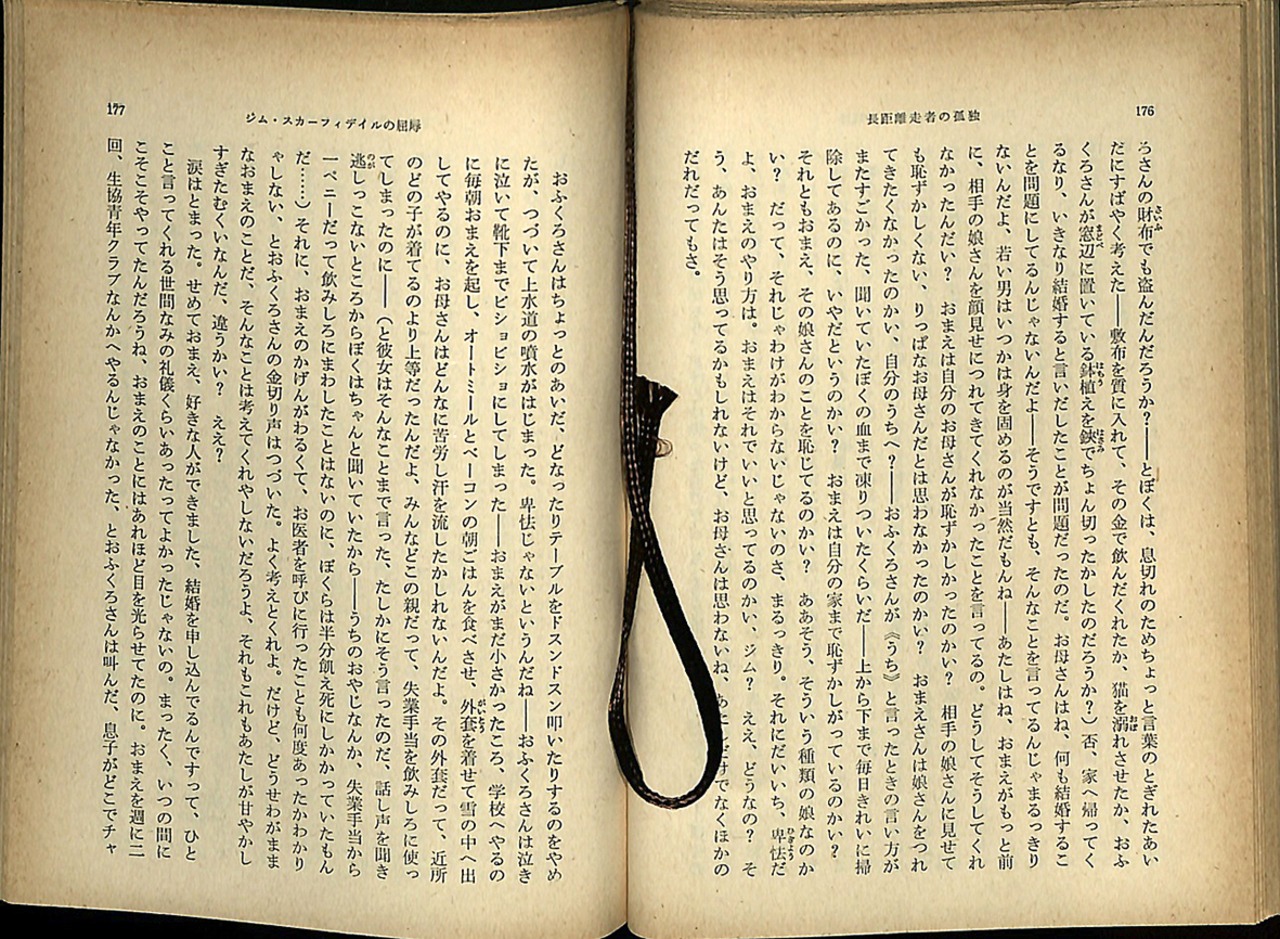 176
長距離走者の孤独
ろさんの財布でも盗んだんだろうか？――とぼくは、息切れのためちょっと言葉のとぎれたあい
だにすばやく考えた――敷布を質に入れて、その金で飲んだくれたか、猫を溺れさせたか、おふ
くろさんが窓辺に置いている鉢植えを鋏でちょん切ったかしたのだろうか？）否、家へ帰ってく
るなり、いきなり結婚すると言いだしたことが問題だったのだ。お母さんはね、何も結婚するこ
とを問題にしてるんじゃないんだよ――そうですとも、そんなことを言ってるんじゃまるっきり
ないんだよ、若い男はいつかは身を固めるのが当然だもんね――あたしはね、おまえがもっと前
に、相手の娘さんを顔見せにつれてきてくれなかったことを言ってるの。どうしてそうしてくれ
なかったんだい？　おまえは自分のお母さんが恥ずかしかったのかい？　相手の娘さんに見せて
も恥ずかしくない、りっぱなお母さんだとは思わなかったのかい？　おまえさんは娘さんをつれ
てきたくなかったのかい、自分のうちへ？――おふくろさんが《うち》と言ったときの言い方が
またすごかった、聞いていたぼくの血まで凍りついたくらいだ――上から下まで毎日きれいに掃
除してあるのに、いやだというのかい？　おまえは自分の家まで恥ずかしがっているのかい？
それともおまえ、その娘さんのことを恥じてるのかい？　ああそう、そういう種類の娘なのか
い？　だって、それじゃわけがわからないじゃないのさ、まるっきり。それにだいいち、卑怯だ
よ、おまえのやり方は。おまえはそれでいいと思ってるのかい、ジム？　ええ、どうなの？　そ
う、あんたはそう思ってるかもしれないけど、お母さんは思わないね、でなくほかの
だれだってもさ。
177
ジム・スカーフィデイルの屈辱
おふくろさんはちょっとのあいだ、どなったりテーブルをドスンドスン叩いたりするのをやめ
たが、つづいて上水道の噴水がはじまった。卑怯じゃないというんだね――おふくろさんは泣き
に泣いて靴下までビショビショにしてしまった――おまえがまだ小さかったころ、学校へやるの
に毎朝おまえを起し、オートミールとベーコンの朝ごはんを食べさせ、外套を着せて雪の中へ出
してやるのに、お母さんはどんなに苦労し汗を流したかしれないんだよ。その外套だって、近所
のどの子が着てるのより上等だったんだよ、みんなどこの親だって、失業手当を飲みしろに使っ
てしまったのに――（と彼女はそんなことまで言った、たしかにそう言ったのだ、話し声を聞き
逃しっこないところからぼくはちゃんと聞いていたから――うちのおやじなんか、失業手当から
一ペニーだって飲みしろにまわしたことはないのに、ぼくらは半分飢え死にしかかっていたもん
だ……）それに、おまえのかげんがわるくて、お医者を呼びに行ったことも何度あったかわかり
ゃしない、とおふくろさんの金切り声はつづいた。よく考えとくれよ。だけど、どうせわがまま
なおまえのことだ、そんなことは考えてくれやしないだろうよ、それもこれもあたしが甘やかし
すぎたむくいなんだ、違うかい？　ええ？
涙はとまった。せめておまえ、好きな人ができました、結婚を申し込んでるんですって、ひと
こと言ってくれる世間なみの礼儀くらいあったってよかったじゃないの。まったく、いつの間に
こそこそやってたんだろうね、おまえのことにはあれほど目を光らせてたのに。おまえを週に二
回、生協青年クラブなんかへやるんじゃなかった、とおふくろさんは叫んだ、息子がどこでチャ